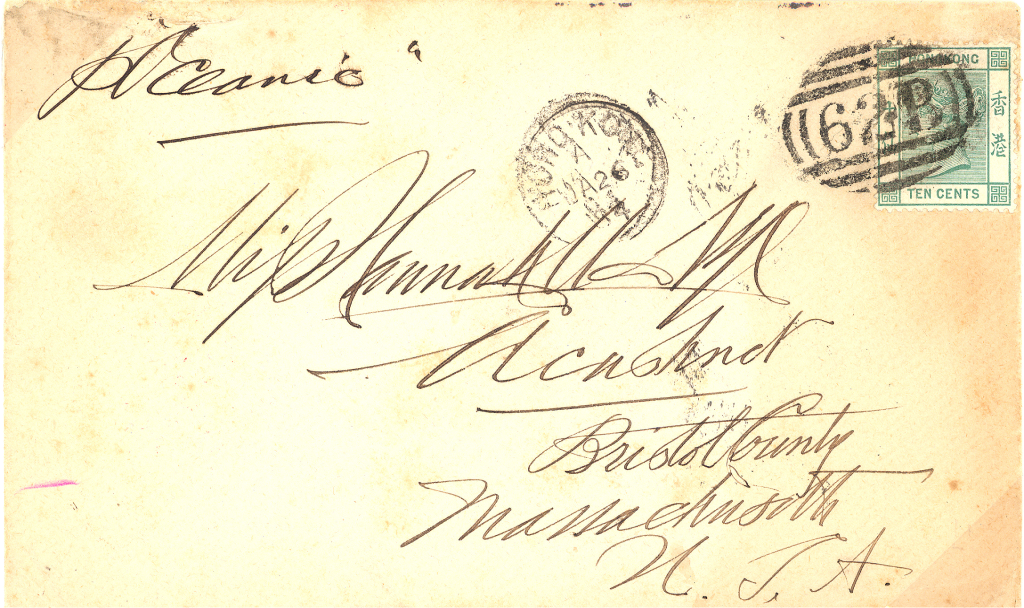 "Oceanic"
HONG KONG
A
JA 26
87
62B
HONG KONG
香港
TEN CENTS
Miss Hannah
Acushnet
Bristol County
Massachusetts
U. S. A.